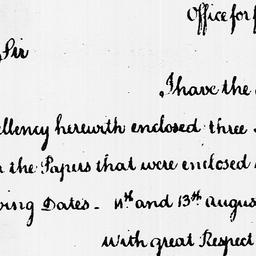 Office for
Sir
I have the
ellency herewith enclosed three
the Papers that were enclosed
ving Dates - 11th and 13th Augus
With great Respect